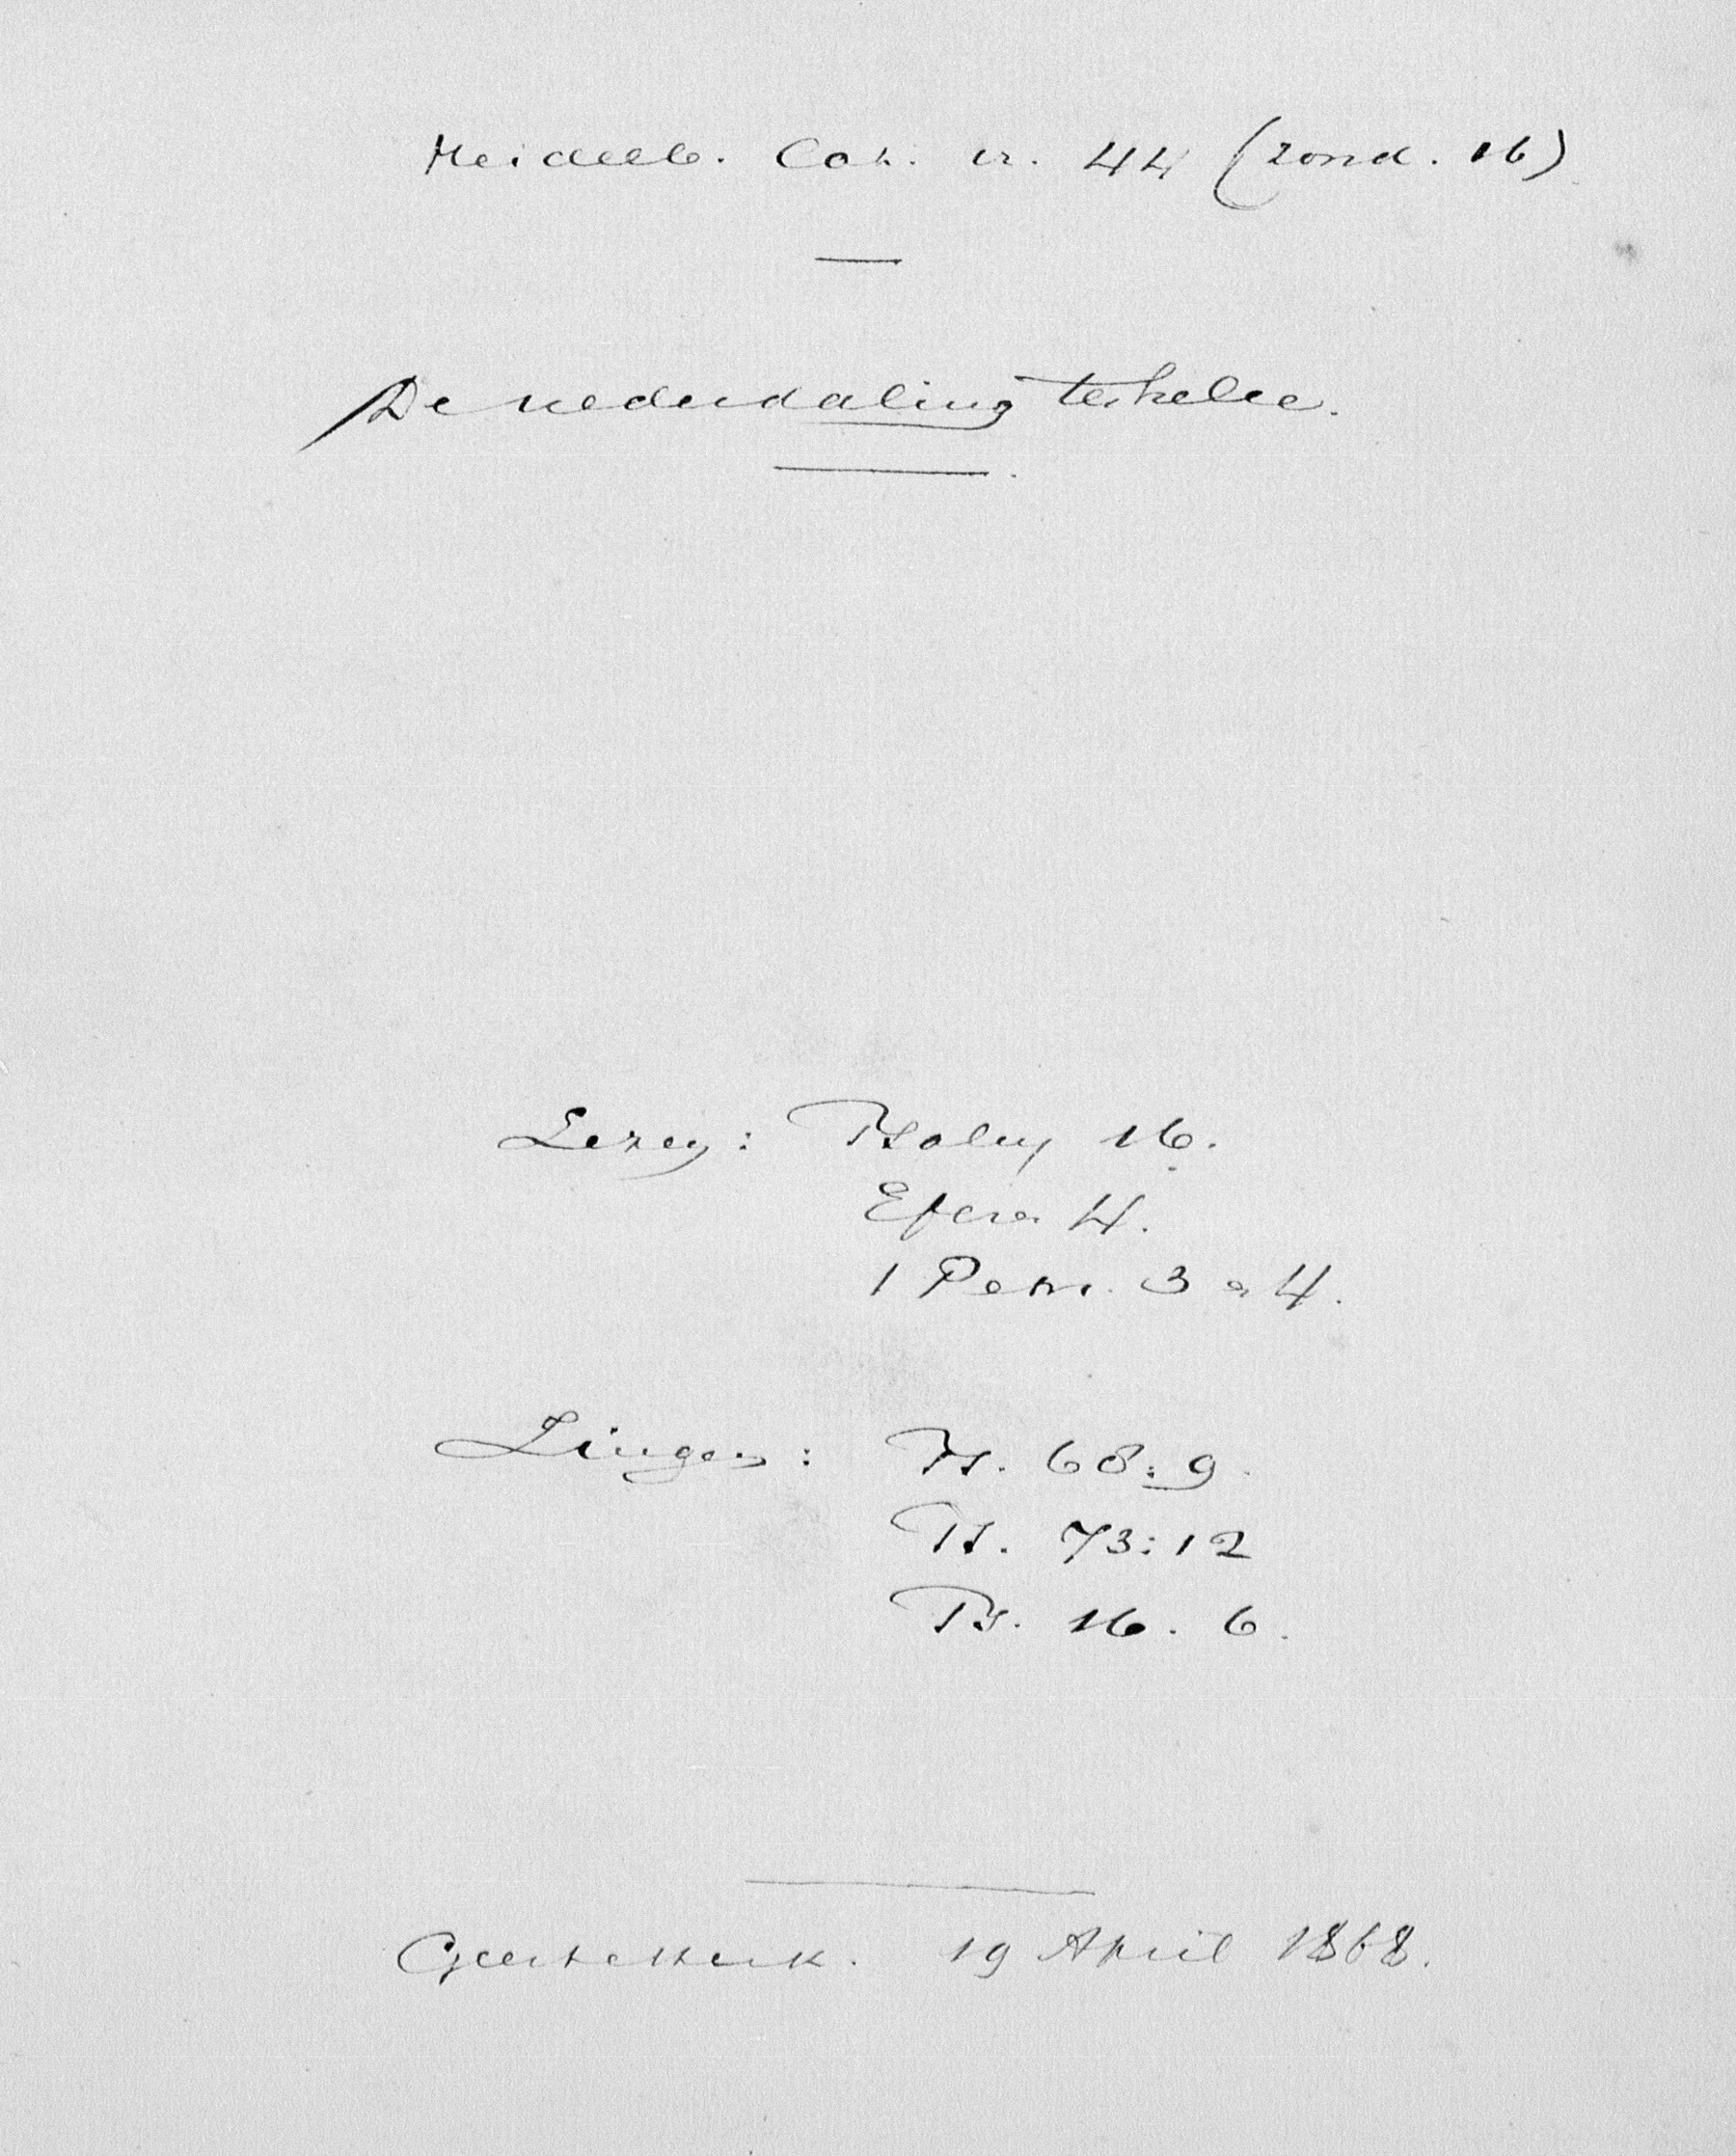 Heidelb. Cat. vr. 44 (zond. 16)
De nederdaling ter helle.
Lezen: Psalm 16.
Efeze 4.
1 Petr. 3 en 4.
Zingen: Ps. 68:9.
Ps. 73:12
Ps. 16. 6.
Geertekerk. 19 April 1868.